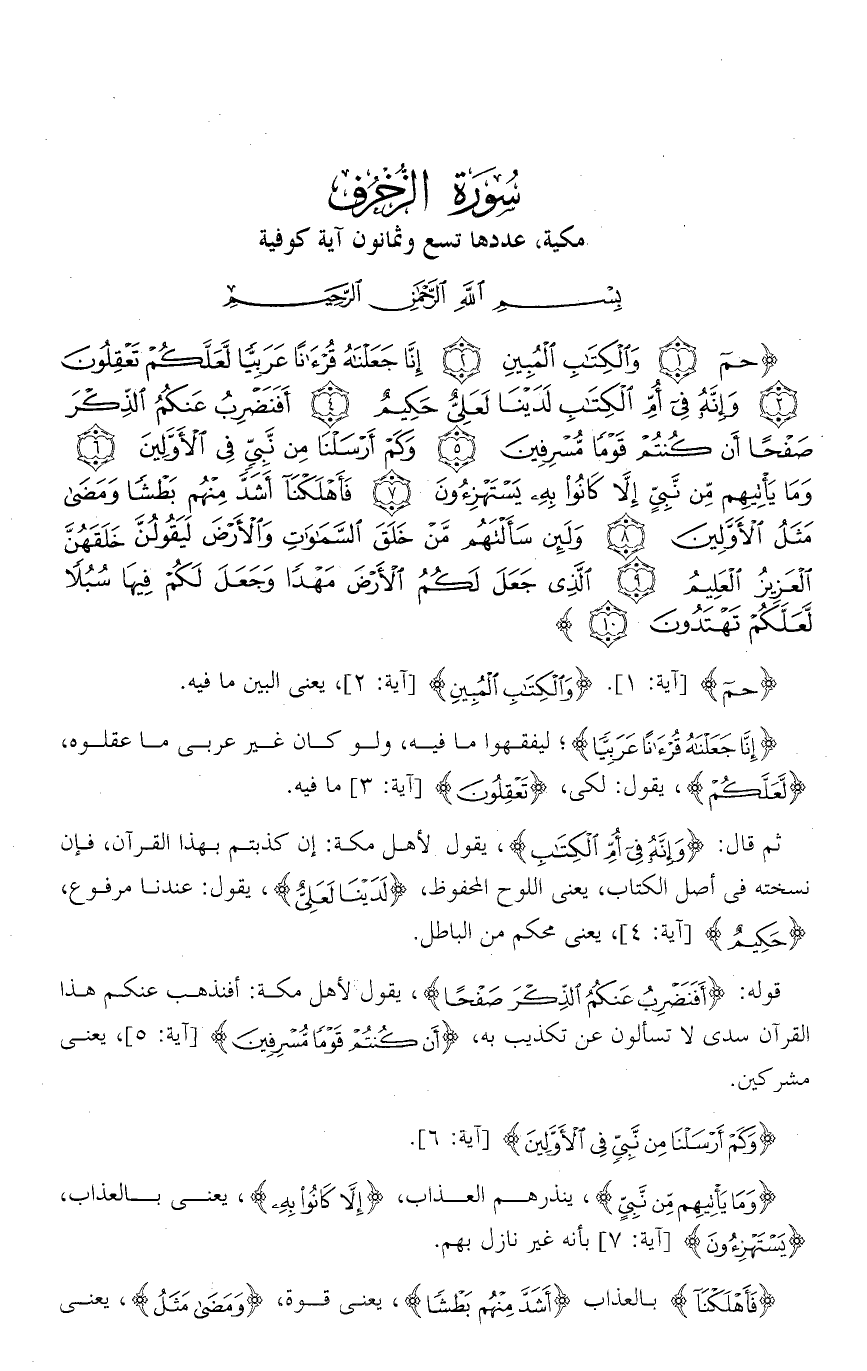 سُورَةُ الزُّخْرُفِ
مكية، عددها تسع وثمانون آية كوفية
بِسْمِ ٱللَّهِ ٱلرَّحْمَٰنِ ٱلرَّحِيمِ
﴿حمٓ ۝١ وَٱلْكِتَٰبِ ٱلْمُبِينِ ۝٢ إِنَّا جَعَلْنَٰهُ قُرْءَٰنًا عَرَبِيًّا لَّعَلَّكُمْ تَعْقِلُونَ
۝٣ وَإِنَّهُۥ فِىٓ أُمِّ ٱلْكِتَٰبِ لَدَيْنَا لَعَلِىٌّ حَكِيمٌ ۝٤ أَفَنَضْرِبُ عَنكُمُ ٱلذِّكْرَ
صَفْحًا أَن كُنتُمْ قَوْمًا مُّسْرِفِينَ ۝٥ وَكَمْ أَرْسَلْنَا مِن نَّبِىٍّ فِى ٱلْأَوَّلِينَ ۝٦
وَمَا يَأْتِيهِم مِّن نَّبِىٍّ إِلَّا كَانُوا۟ بِهِۦ يَسْتَهْزِءُونَ ۝٧ فَأَهْلَكْنَآ أَشَدَّ مِنْهُم بَطْشًا وَمَضَىٰ
مَثَلُ ٱلْأَوَّلِينَ ۝٨ وَلَئِن سَأَلْتَهُم مَّنْ خَلَقَ ٱلسَّمَٰوَٰتِ وَٱلْأَرْضَ لَيَقُولُنَّ خَلَقَهُنَّ
ٱلْعَزِيزُ ٱلْعَلِيمُ ۝٩ ٱلَّذِى جَعَلَ لَكُمُ ٱلْأَرْضَ مَهْدًا وَجَعَلَ لَكُمْ فِيهَا سُبُلًا
لَّعَلَّكُمْ تَهْتَدُونَ ۝١٠﴾
﴿حمٓ﴾ [آية: ١]. ﴿وَٱلْكِتَٰبِ ٱلْمُبِينِ﴾ [آية: ٢]، يعنى البين ما فيه.
﴿إِنَّا جَعَلْنَٰهُ قُرْءَٰنًا عَرَبِيًّا﴾؛ ليفقهوا ما فيه، ولو كان غير عربى ما عقلوه،
﴿لَّعَلَّكُمْ﴾، يقول: لكى، ﴿تَعْقِلُونَ﴾ [آية: ٣] ما فيه.
ثم قال: ﴿وَإِنَّهُۥ فِىٓ أُمِّ ٱلْكِتَٰبِ﴾، يقول لأهل مكة: إن كذبتم بهذا القرآن، فإن
نسخته فى أصل الكتاب، يعنى اللوح المحفوظ، ﴿لَدَيْنَا لَعَلِىٌّ﴾، يقول: عندنا مرفوع،
﴿حَكِيمٌ﴾ [آية: ٤]، يعنى محكم من الباطل.
قوله: ﴿أَفَنَضْرِبُ عَنكُمُ ٱلذِّكْرَ صَفْحًا﴾، يقول لأهل مكة: أفنذهب عنكم هذا
القرآن سدى لا تسألون عن تكذيب به، ﴿أَن كُنتُمْ قَوْمًا مُّسْرِفِينَ﴾ [آية: ٥]، يعنى
مشركين.
﴿وَكَمْ أَرْسَلْنَا مِن نَّبِىٍّ فِى ٱلْأَوَّلِينَ﴾ [آية: ٦].
﴿وَمَا يَأْتِيهِم مِّن نَّبِىٍّ﴾، ينذرهم العذاب، ﴿إِلَّا كَانُوا۟ بِهِۦ﴾، يعنى بالعذاب،
﴿يَسْتَهْزِءُونَ﴾ [آية: ٧] بأنه غير نازل بهم.
﴿فَأَهْلَكْنَآ﴾ بالعذاب ﴿أَشَدَّ مِنْهُم بَطْشًا﴾، يعنى قوة، ﴿وَمَضَىٰ مَثَلُ﴾، يعنى